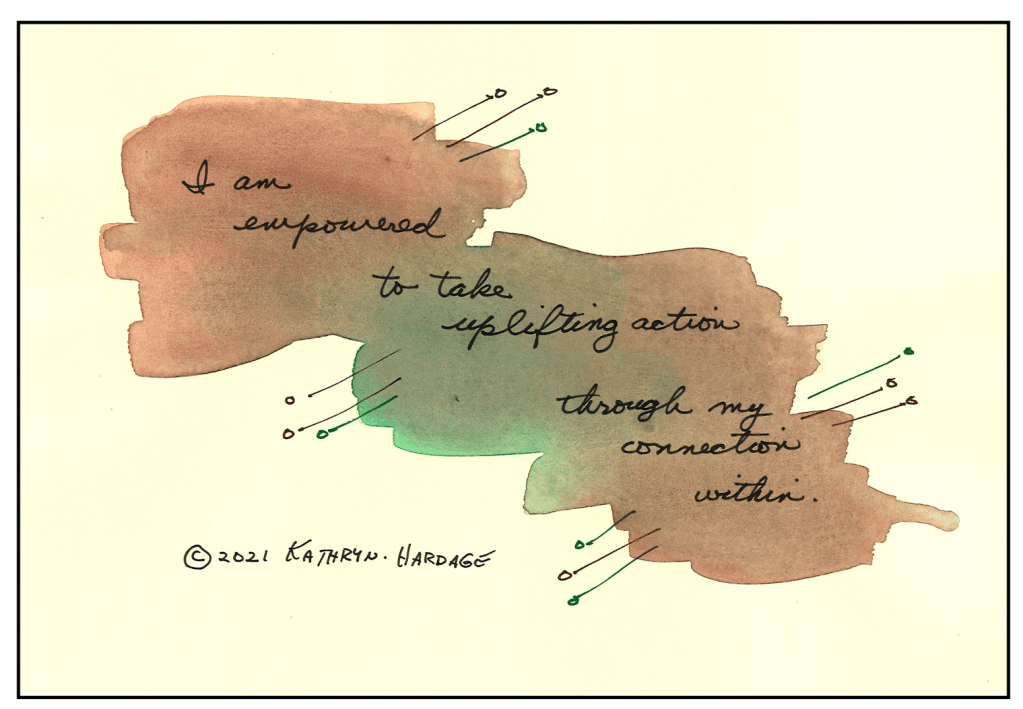 I am
empowered
to take
uplifting action
through my
connection
within.
© 2021 KATHRYN. HARDAGE